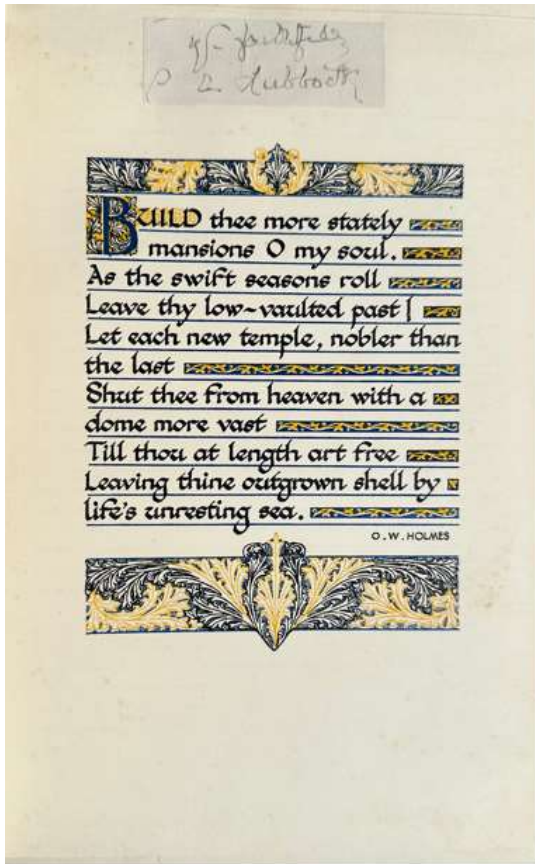 Yrs faithfully
BUILD thee more stately
mansions O my soul.
As the swift seasons roll
Leave thy low-vaulted past!
Let each new temple, nobler than
the last
Shut thee from heaven with a
dome more vast
Till thou at length art free
Leaving thine outgrown shell by
life's unresting sea.
O.W. HOLMES